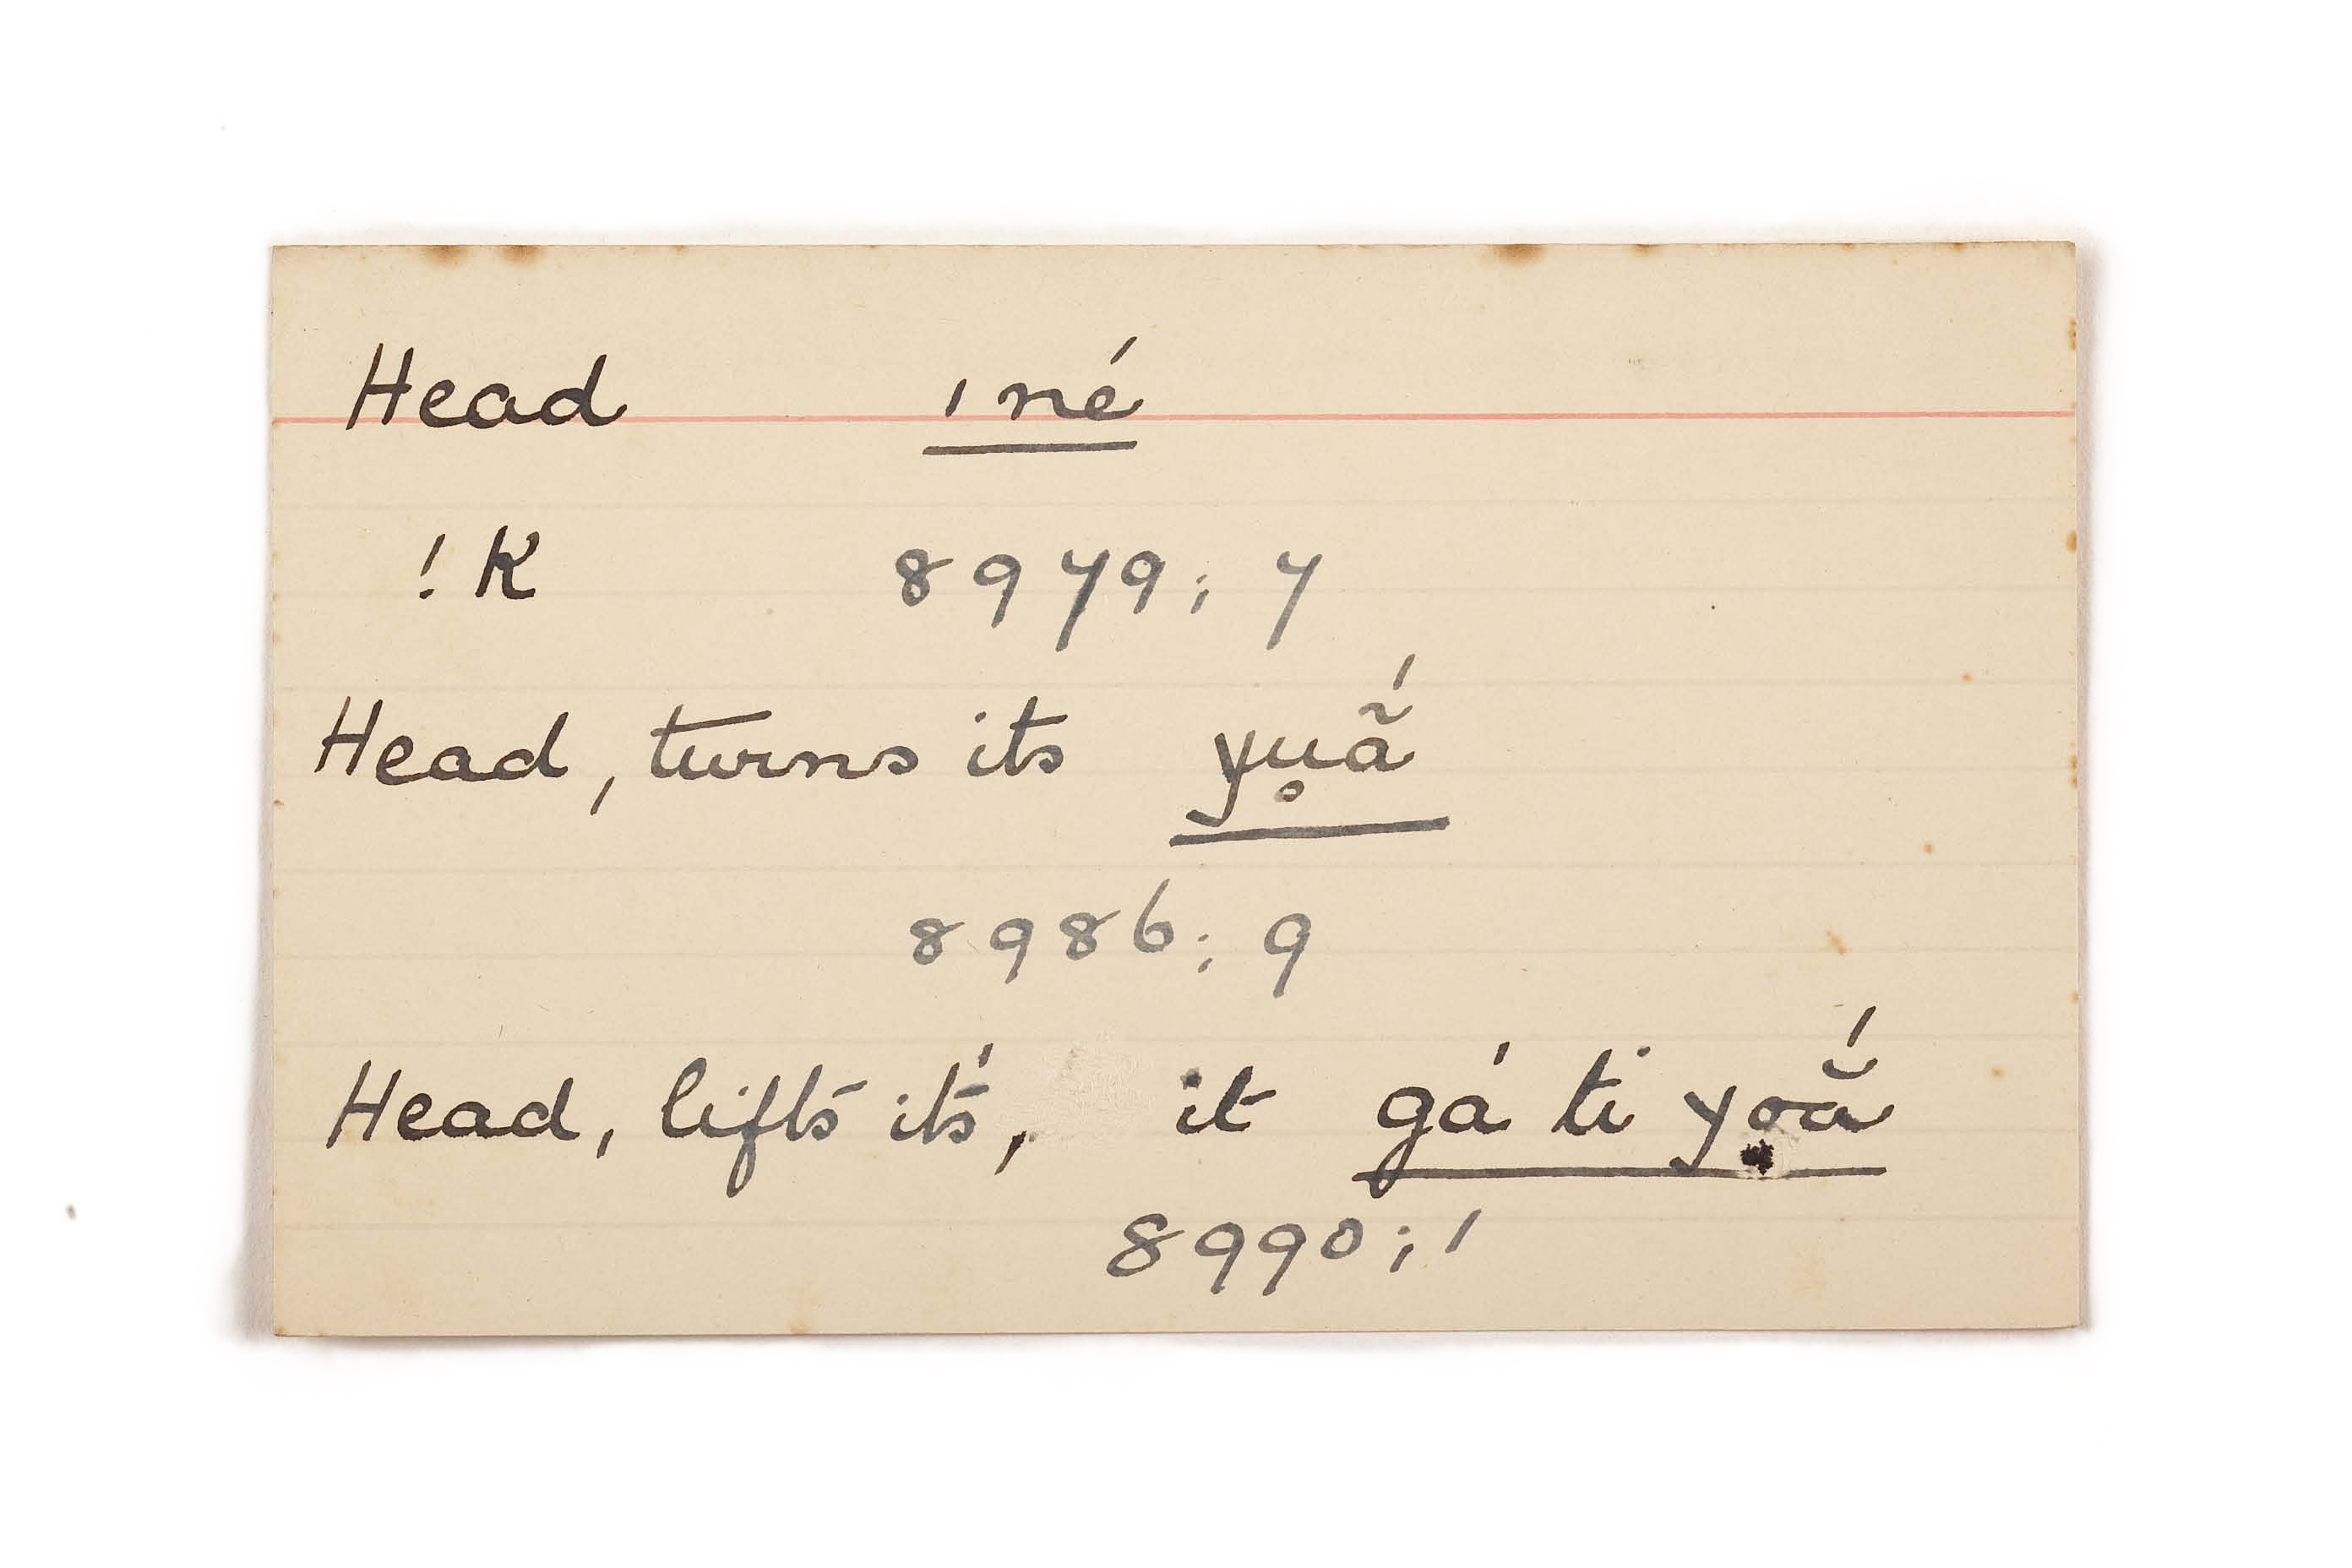 Head ı né
! K 8979; 7
Head, turns its yu̥ã́
8986; 9
Head, lifts its, it gá ti yoã́
8990; 1